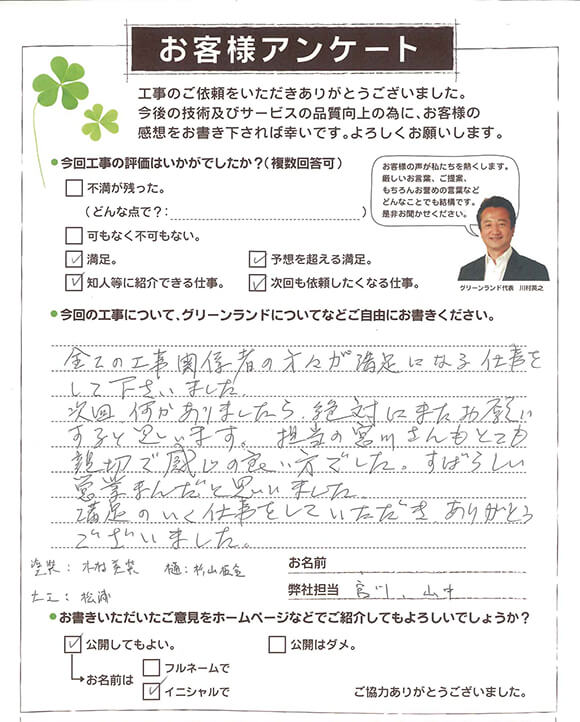 お客様アンケート
工事のご依頼をいただきありがとうございました。
今後の技術及びサービスの品質向上の為に、お客様の
感想をお書き下されば幸いです。よろしくお願いします。
●今回工事の評価はいかがでしたか？（複数回答可）
不満が残った。
（どんな点で？：　）
可もなく不可もない。
満足。
予想を超える満足。
知人等に紹介できる仕事。
次回も依頼したくなる仕事。
お客様の声が私たちを熱くします。
厳しいお言葉、ご提案、
もちろんお誉めの言葉など
どんなことでも結構です。
是非お聞かせください。
グリーンランド代表　川村英之
●今回の工事について、グリーンランドについてなどご自由にお書きください。
全ての工事関係者の方々が満足になる仕事を
して下さいました。
次回何かありましたら、絶対にまたお願い
すると思います。担当の宮川さんもとても
親切で感じの良い方でした。すばらしい
営業まんだと思いました
満足のいく仕事をしていただき、ありがとう
ございました。
塗装：木村美装　樋：杉山板金
大工：松浦
お名前
弊社担当　宮川、山中
●お書きいただいたご意見をホームページなどでご紹介してもよろしいでしょうか？
公開してもよい。
公開はダメ。
お名前は
フルネームで
イニシャルで
ご協力ありがとうございました。